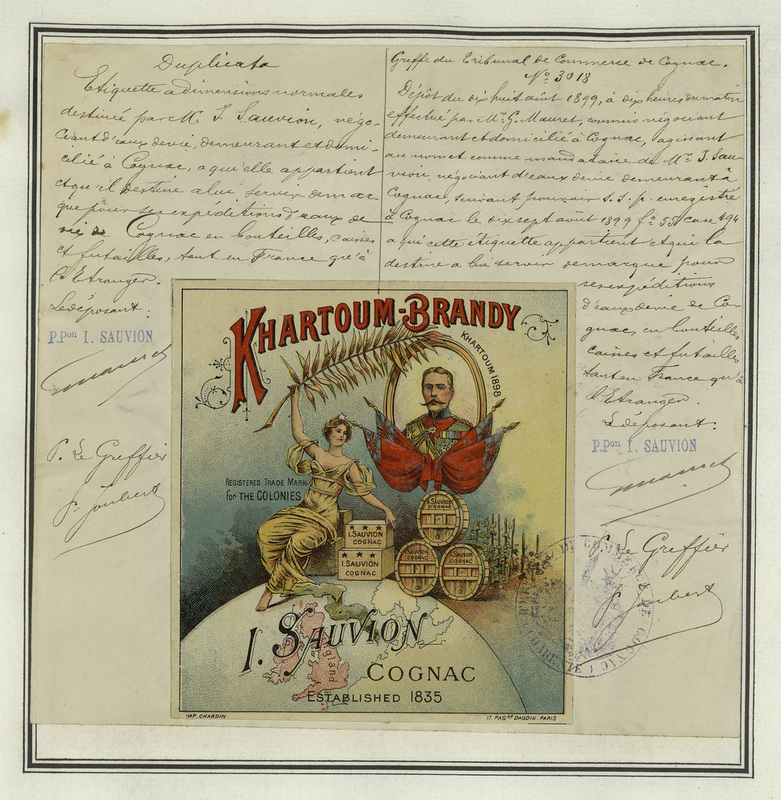 Duplicata
Etiquette à dimensions normales
destinée par M. I. Sauvion, négo-
ciant d'eaux de vie, demeurant et domi-
cilié à Cognac, à qui elle appartient
et qu'il destine à lui servir de mar-
que pour ses expéditions d'eaux de
vie de Cognac en bouteilles, caisses
et futailles, tant en France qu'à
l'Etranger.
Le déposant:
P.Pon I. SAUVION
P. Le Greffier
P. Joubert
Greffe du Tribunal de Commerce de Cognac.
No. 3018
Dépôt du dix huit août 1899, à dix heures du matin
effectué par Mr. G. Mauret, commis négociant
demeurant et domicilié à Cognac, agissant
au nom et comme mandataire de Mr. I. Sau-
vion, négociant d'eaux de vie demeurant à
Cognac, suivant pouvoir S. S. p. enregistré
à Cognac le dix sept août 1899 fo. 55 case 494
à qui cette étiquette appartient et qui la
destine à lui servir de marque pour
ses expéditions
d'eaux de vie de Co-
gnac, en bouteilles
caisses et futailles
tant en France qu'à
l'Etranger.
Le déposant:
P.Pon I. SAUVION
P. Le Greffier
P. Joubert
KHARTOUM-BRANDY
KHARTOUM 1898
REGISTERED TRADE MARK
for THE COLONIES
I. SAUVION
COGNAC
I. SAUVION
COGNAC
I. SAUVION
COGNAC
SAUVION
COGNAC
I. SAUVION
COGNAC
England
I. SAUVION
COGNAC
ESTABLISHED 1835
IMP. CHARDIN
17, PASGE DAUDIN, PARIS
DE COMMERCE DE COGNAC
CHARENTE